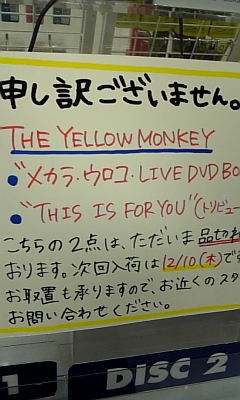 申し訳ございません。
THE YELLOW MONKEY
●"メカラ・ウロコ・LIVE DVD BO
●"THIS IS FOR YOU"(トリビュー
こちらの2点は、ただいま品切れ
おります。次回入荷は12/10(木)で
お取置も承りますので、お近くのスタ
お問い合わせください。
1
DISC 2